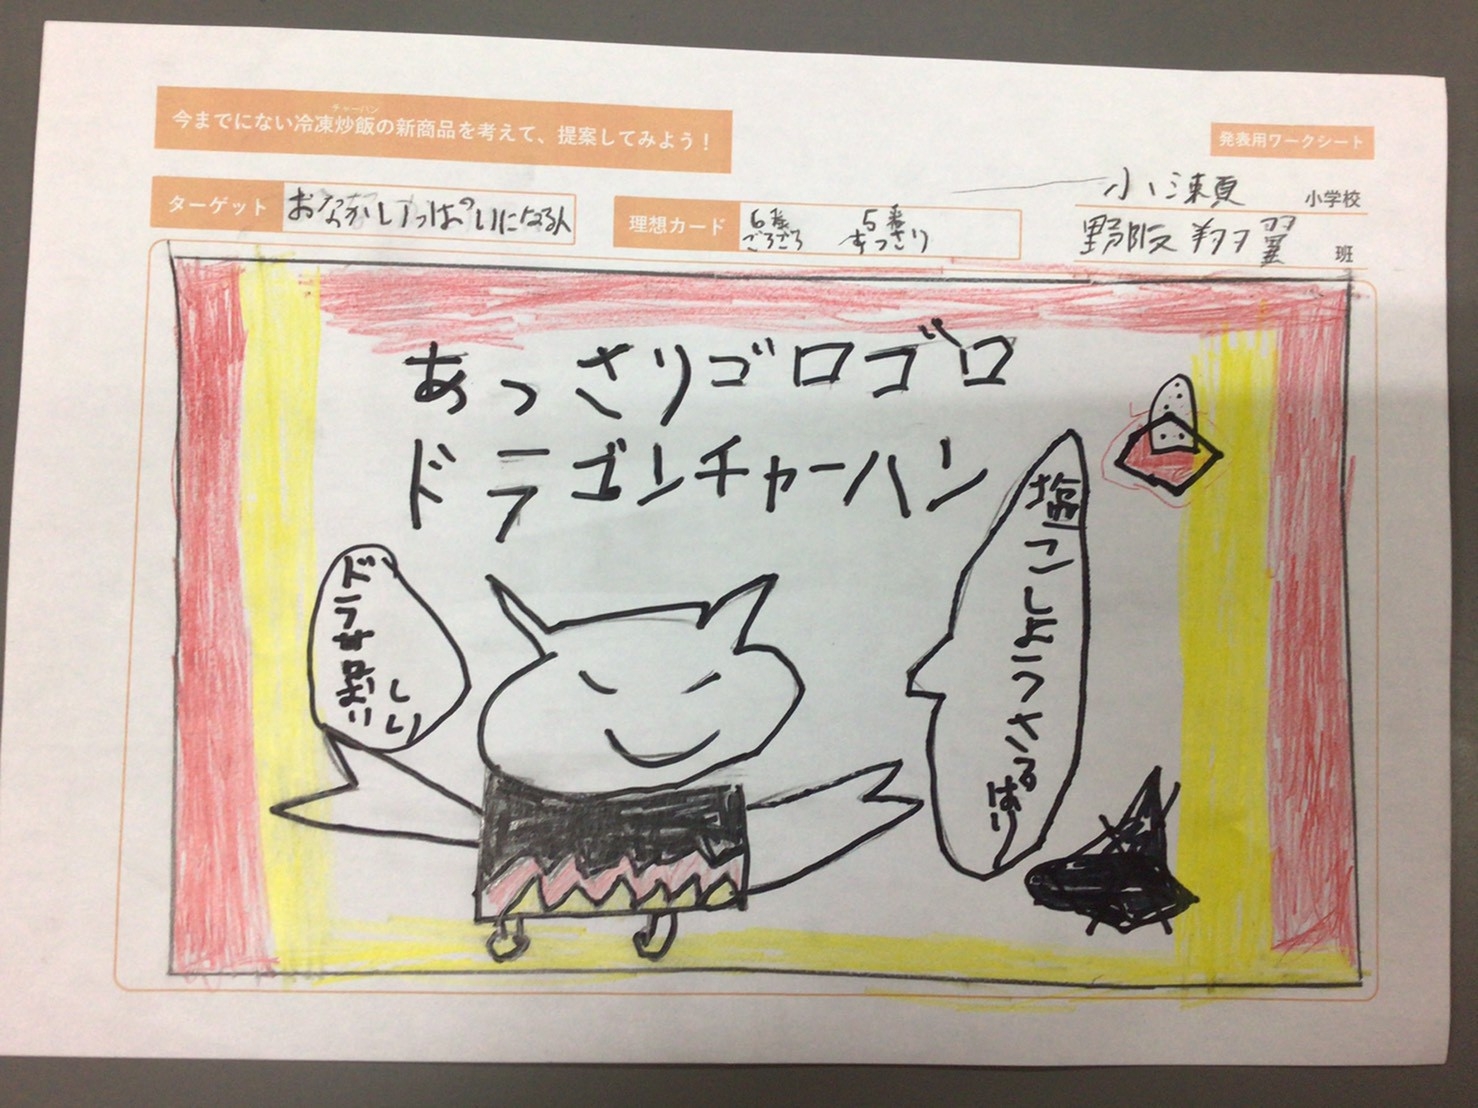 今までにない冷凍炒飯の新商品を考えて、提案してみよう！
チャーハン
発表用ワークシート
ターゲット
おなかいっぱいになる人
理想カード
6番 ごろごろ
5番 あっさり
小瀬 小学校
野阪 翔翼 班
あっさりゴロゴロ
ドラゴンチャーハン
塩こしょうさっぱり
おいしい